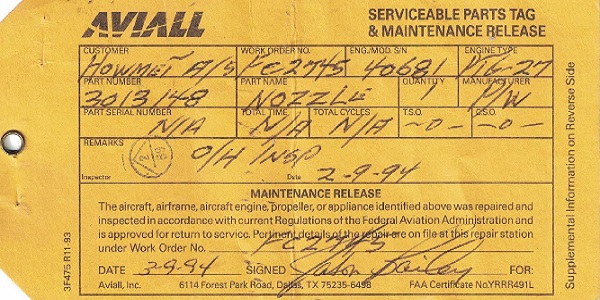 AVIALL SERVICEABLE PARTS TAG
& MAINTENANCE RELEASE
CUSTOMER WORK ORDER NO. ENG./MOD. S/N ENGINE TYPE
HOWMET A/S FC2745 40681 PT6-27
PART NUMBER PART NAME QUANTITY MANUFACTURER
3013148 NOZZLE 1 P/W
PART SERIAL NUMBER TOTAL TIME TOTAL CYCLES T.S.O. C.S.O.
N/A N/A N/A -0- -0-
REMARKS
O/H INSP
Inspector Date 2-9-94
MAINTENANCE RELEASE
The aircraft, airframe, aircraft engine, propeller, or appliance identified above was repaired and
inspected in accordance with current Regulations of the Federal Aviation Administration and
is approved for return to service. Pertinent details of the repair are on file at this repair station
under Work Order No. FC2745
DATE 2-9-94 SIGNED Jason Bailey FOR:
Aviall, Inc. 6114 Forest Park Road, Dallas, TX 75235-6498 FAA Certificate No.YRRR491L
3F475 R11-93
Supplemental Information on Reverse Side